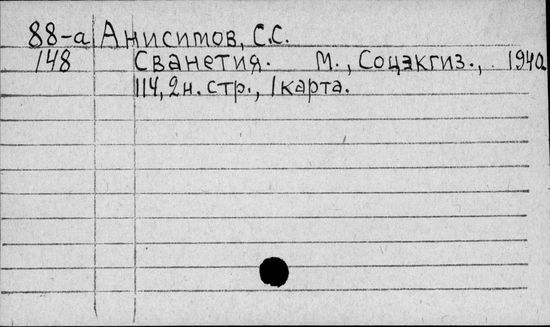 88-а Анисимов, С.С.
148 Сванетия. М., Соцэкгиз., 1940
114, 2 н. стр., 1 карта.